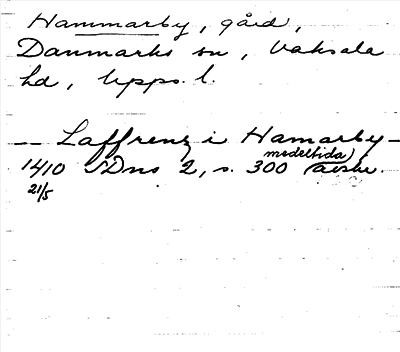 Hammarby, gård,
Danmarks sn, Vaksala
hd, Upps. l.
-- Laffrenz i Hamarby -
1410 SDns 2, s. 300 (medeltida avskr.)
21/5